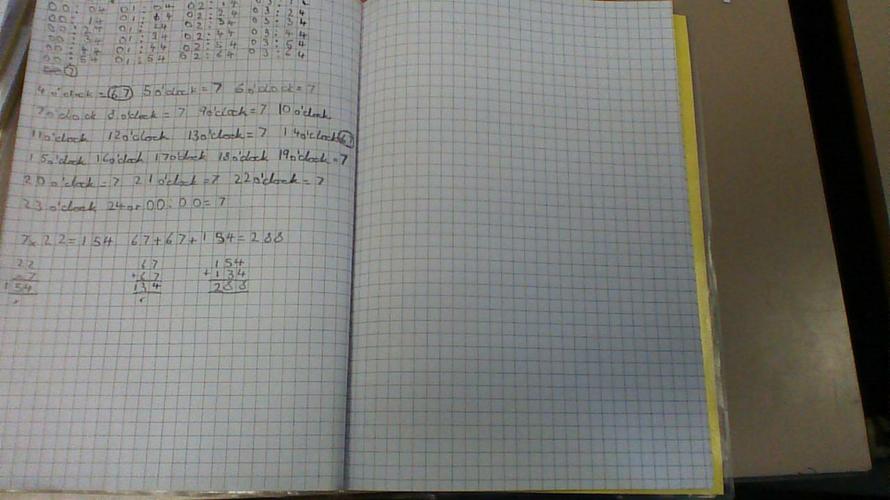 00:04 01:04 02:14 03:14
00:14 01:14 02:24 03:24
00:24 01:24 02:34 03:34
00:34 01:34 02:44 03:44
00:44 01:44 02:54 03:54
00:54 01:54 02:64 03:64
7
4 o'clock = 67 5 o'clock = 7 6 o'clock = 7
7 o'clock 8 o'clock = 7 9 o'clock = 7 10 o'clock
11 o'clock 12 o'clock 13 o'clock = 7 14 o'clock 67
15 o'clock 16 o'clock 17 o'clock 18 o'clock 19 o'clock = 7
20 o'clock = 7 21 o'clock = 7 22 o'clock = 7
23 o'clock 24 or 00:00 = 7
7x22=154 67+67+154=288
22 67 154
x7 +67 +134
154 134 288